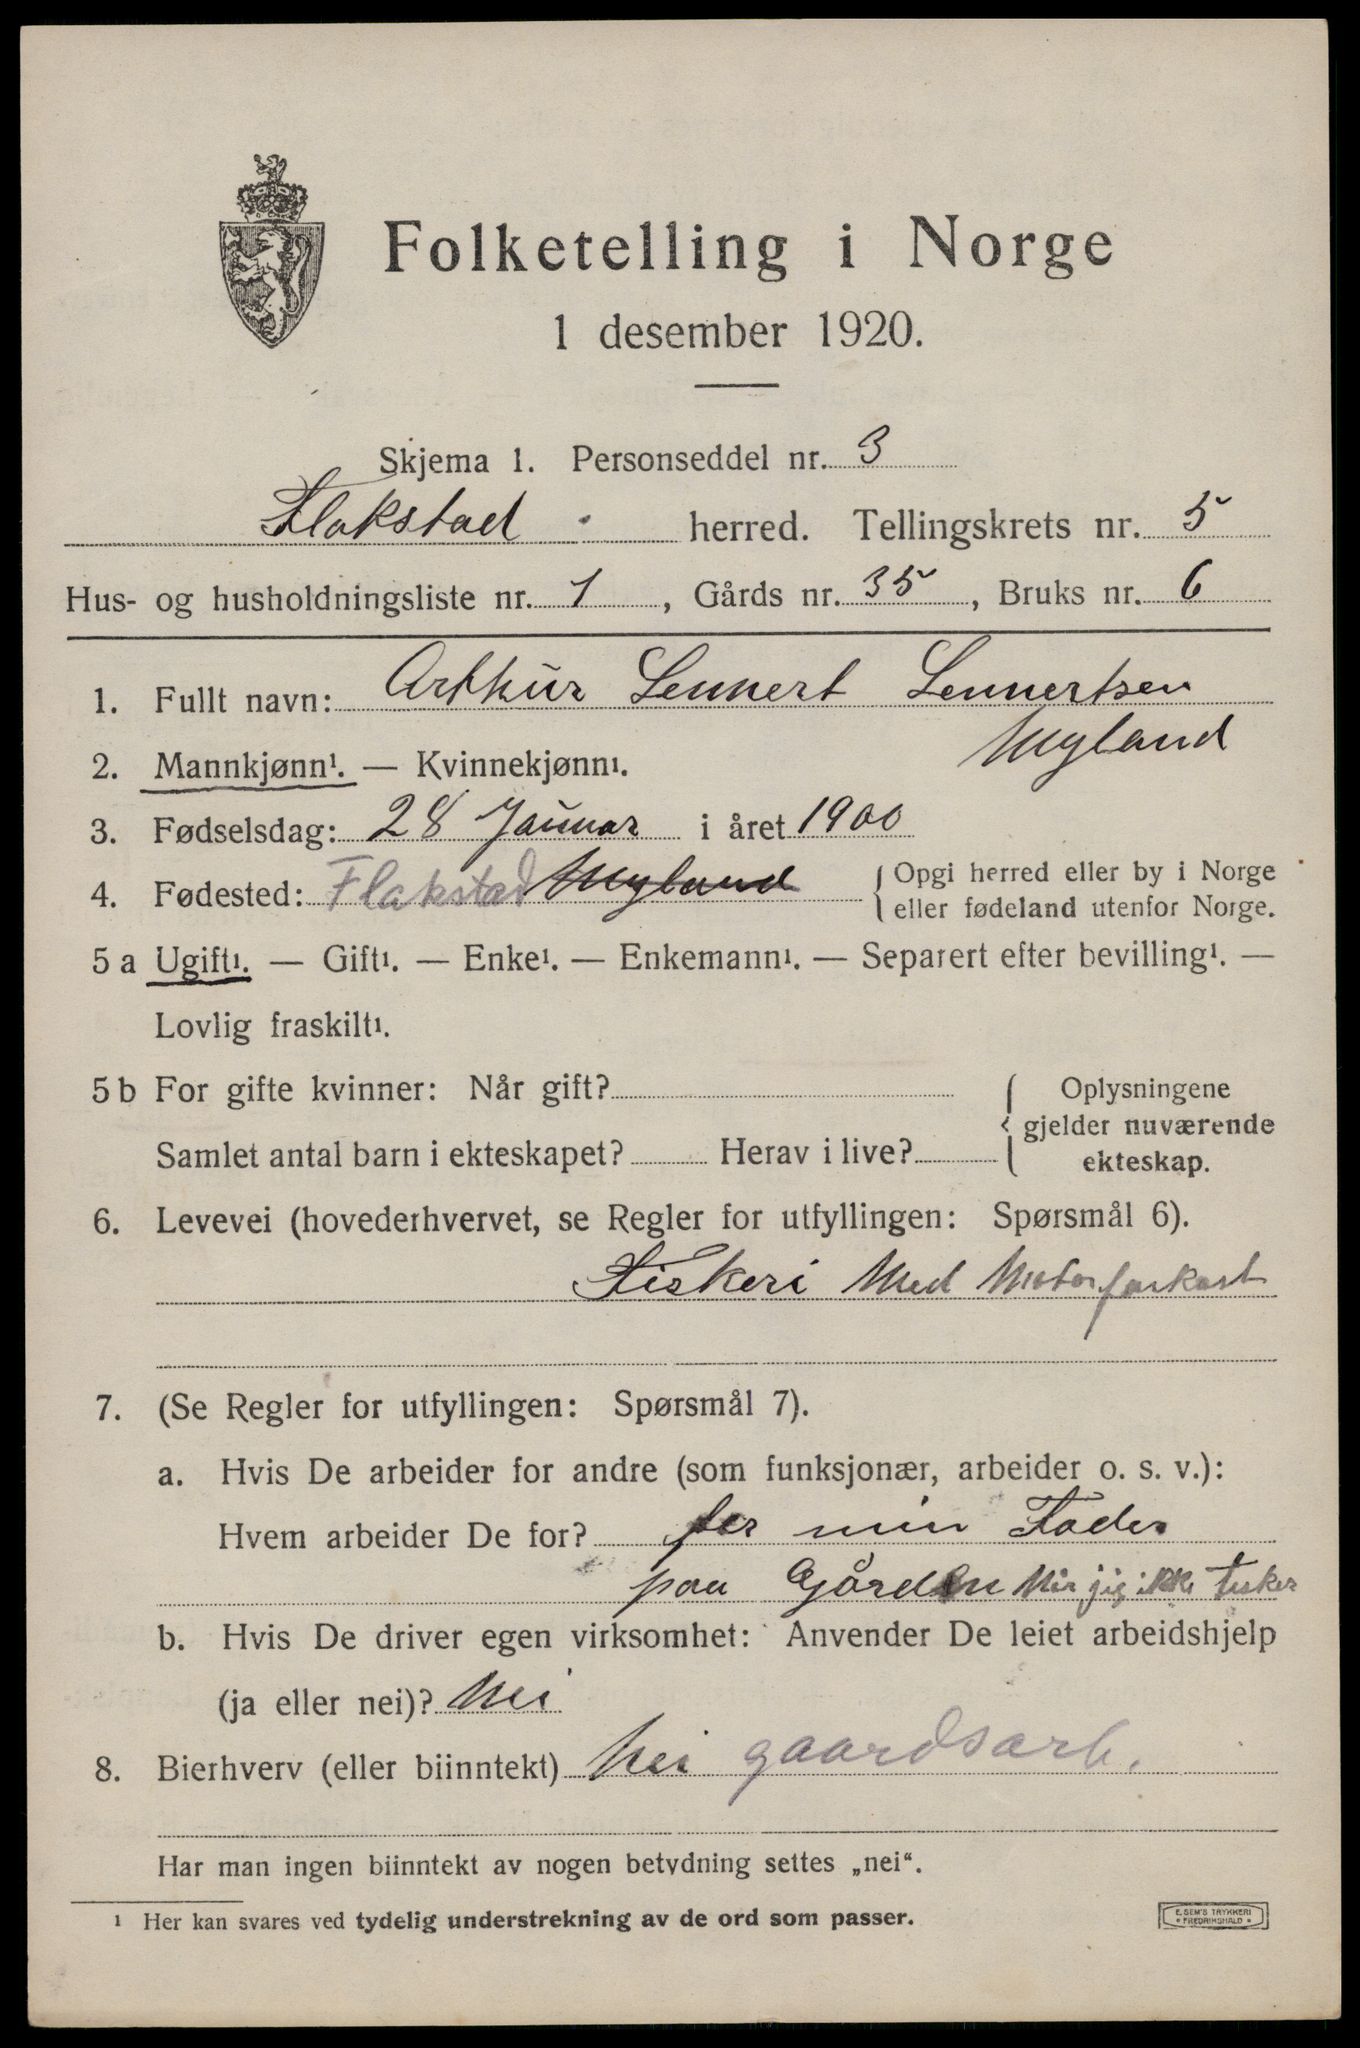 Folketelling i Norge
1 desember 1920.
Skjema 1. Personseddel nr. 3
Flakstad herred. Tellingskrets nr. 5
Hus- og husholdningsliste nr. 1, Gårds nr. 35, Bruks nr. 6
1. Fullt navn: Arthur Lennert Lennertsen
Myland
2. Mannkjønn¹. — Kvinnekjønn¹.
3. Fødselsdag: 28 Januar i året 1900
4. Fødested: Flakstad Myland { Opgi herred eller by i Norge
eller fødeland utenfor Norge.
5 a Ugift¹. — Gift¹. — Enke¹. — Enkemann¹. — Separert efter bevilling¹. —
Lovlig fraskilt¹.
5 b For gifte kvinner: Når gift?
Samlet antal barn i ekteskapet? Herav i live?
{ Oplysningene
gjelder nuværende
ekteskap.
6. Levevei (hovederhvervet, se Regler for utfyllingen: Spørsmål 6).
Fiskeri Med Motorfarkost
7. (Se Regler for utfyllingen: Spørsmål 7).
a. Hvis De arbeider for andre (som funksjonær, arbeider o. s. v.):
Hvem arbeider De for? for min Fader
paa Gården jeg ikke
b. Hvis De driver egen virksomhet: Anvender De leiet arbeidshjelp
(ja eller nei)? Nei
8. Bierhverv (eller biinntekt) Nei gaardsarb.
Har man ingen biinntekt av nogen betydning settes „nei“.
¹ Her kan svares ved tydelig understrekning av de ord som passer.
E. SEM'S TRYKKERI
• FREDRIKSHALD •